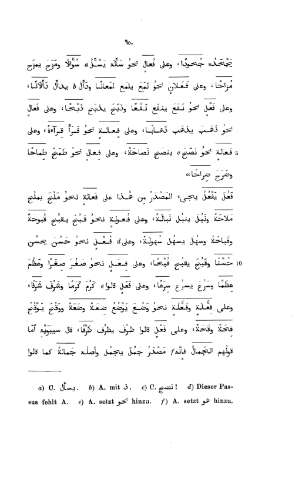 ٩٠
يجحد جحودا، وعلى فعال نحو سأله يسأل سؤالا ومزح يمزح
مزاحا، وعلى فعلان نحو لمع يلمع لمعانا
وعلى فعل نحو نفع ينفع نفعا وذبح يذبح ذبحا، وعلى فعال
نحو ذهب يذهب ذهابا، وعلى فعالة نحو قرأ قراءة، وعلى
فعالة نحو نصح ينصح نصاحة، وعلى فعال نحو طمح طماحا
وضرح ضراحا
فعل يفعل يجىء المصدر من هذا على فعالة نحو ملح يملح
ملاحة ونبل ينبل نبالة، وعلى فعولة نحو قبح يقبح قبوحة
وقباحة وسهل يسهل سهولة، وعلى فعل نحو حسن يحسن
١٠ حسنا وقبح يقبح قبحا، وعلى فعل نحو صغر صغرا وعظم
عظما وسرع يسرع سرعا، وعلى فعل قالوا كرم كرما وشرف شرفا،
وعلى فعلة وفعلة نحو وضع يوضع ضعة وضعة ووقح يوقح
قحة وقحة، وعلى فعل قالوا ظرف يظرف ظرفا، قال سيبويه أما
قولهم الجمال فإنه مصدر جمل يجمل وأصله جمالة كما قالوا
a) C. يسأل. b) A. mit ذ. c) C. ! d) Dieser Pas-
sus fehlt A. e) A. setzt نحو hinzu. f) A. setzt نحو hinzu.